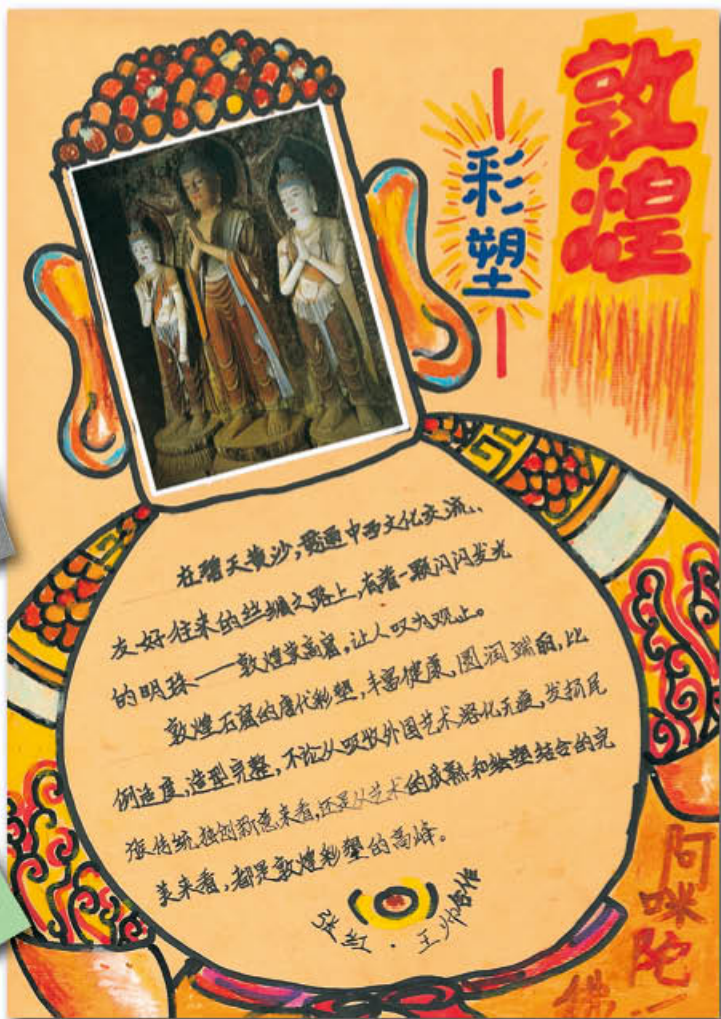 敦煌
彩塑
在碧天黄沙,贯通中西文化交流、
友好往来的丝绸之路上,有着一颗闪闪发光
的明珠——敦煌莫高窟,让人叹为观止。
敦煌石窟的唐代彩塑,丰富健康,圆润端丽,比
例适度,造型完整,不论从吸收外国艺术溶化无痕,发扬民
族传统独创新意来看,还是从艺术的成熟和绘塑结合的完
美来看,都是敦煌彩塑的高峰。
张红·王帅合作
阿咪陀
佛